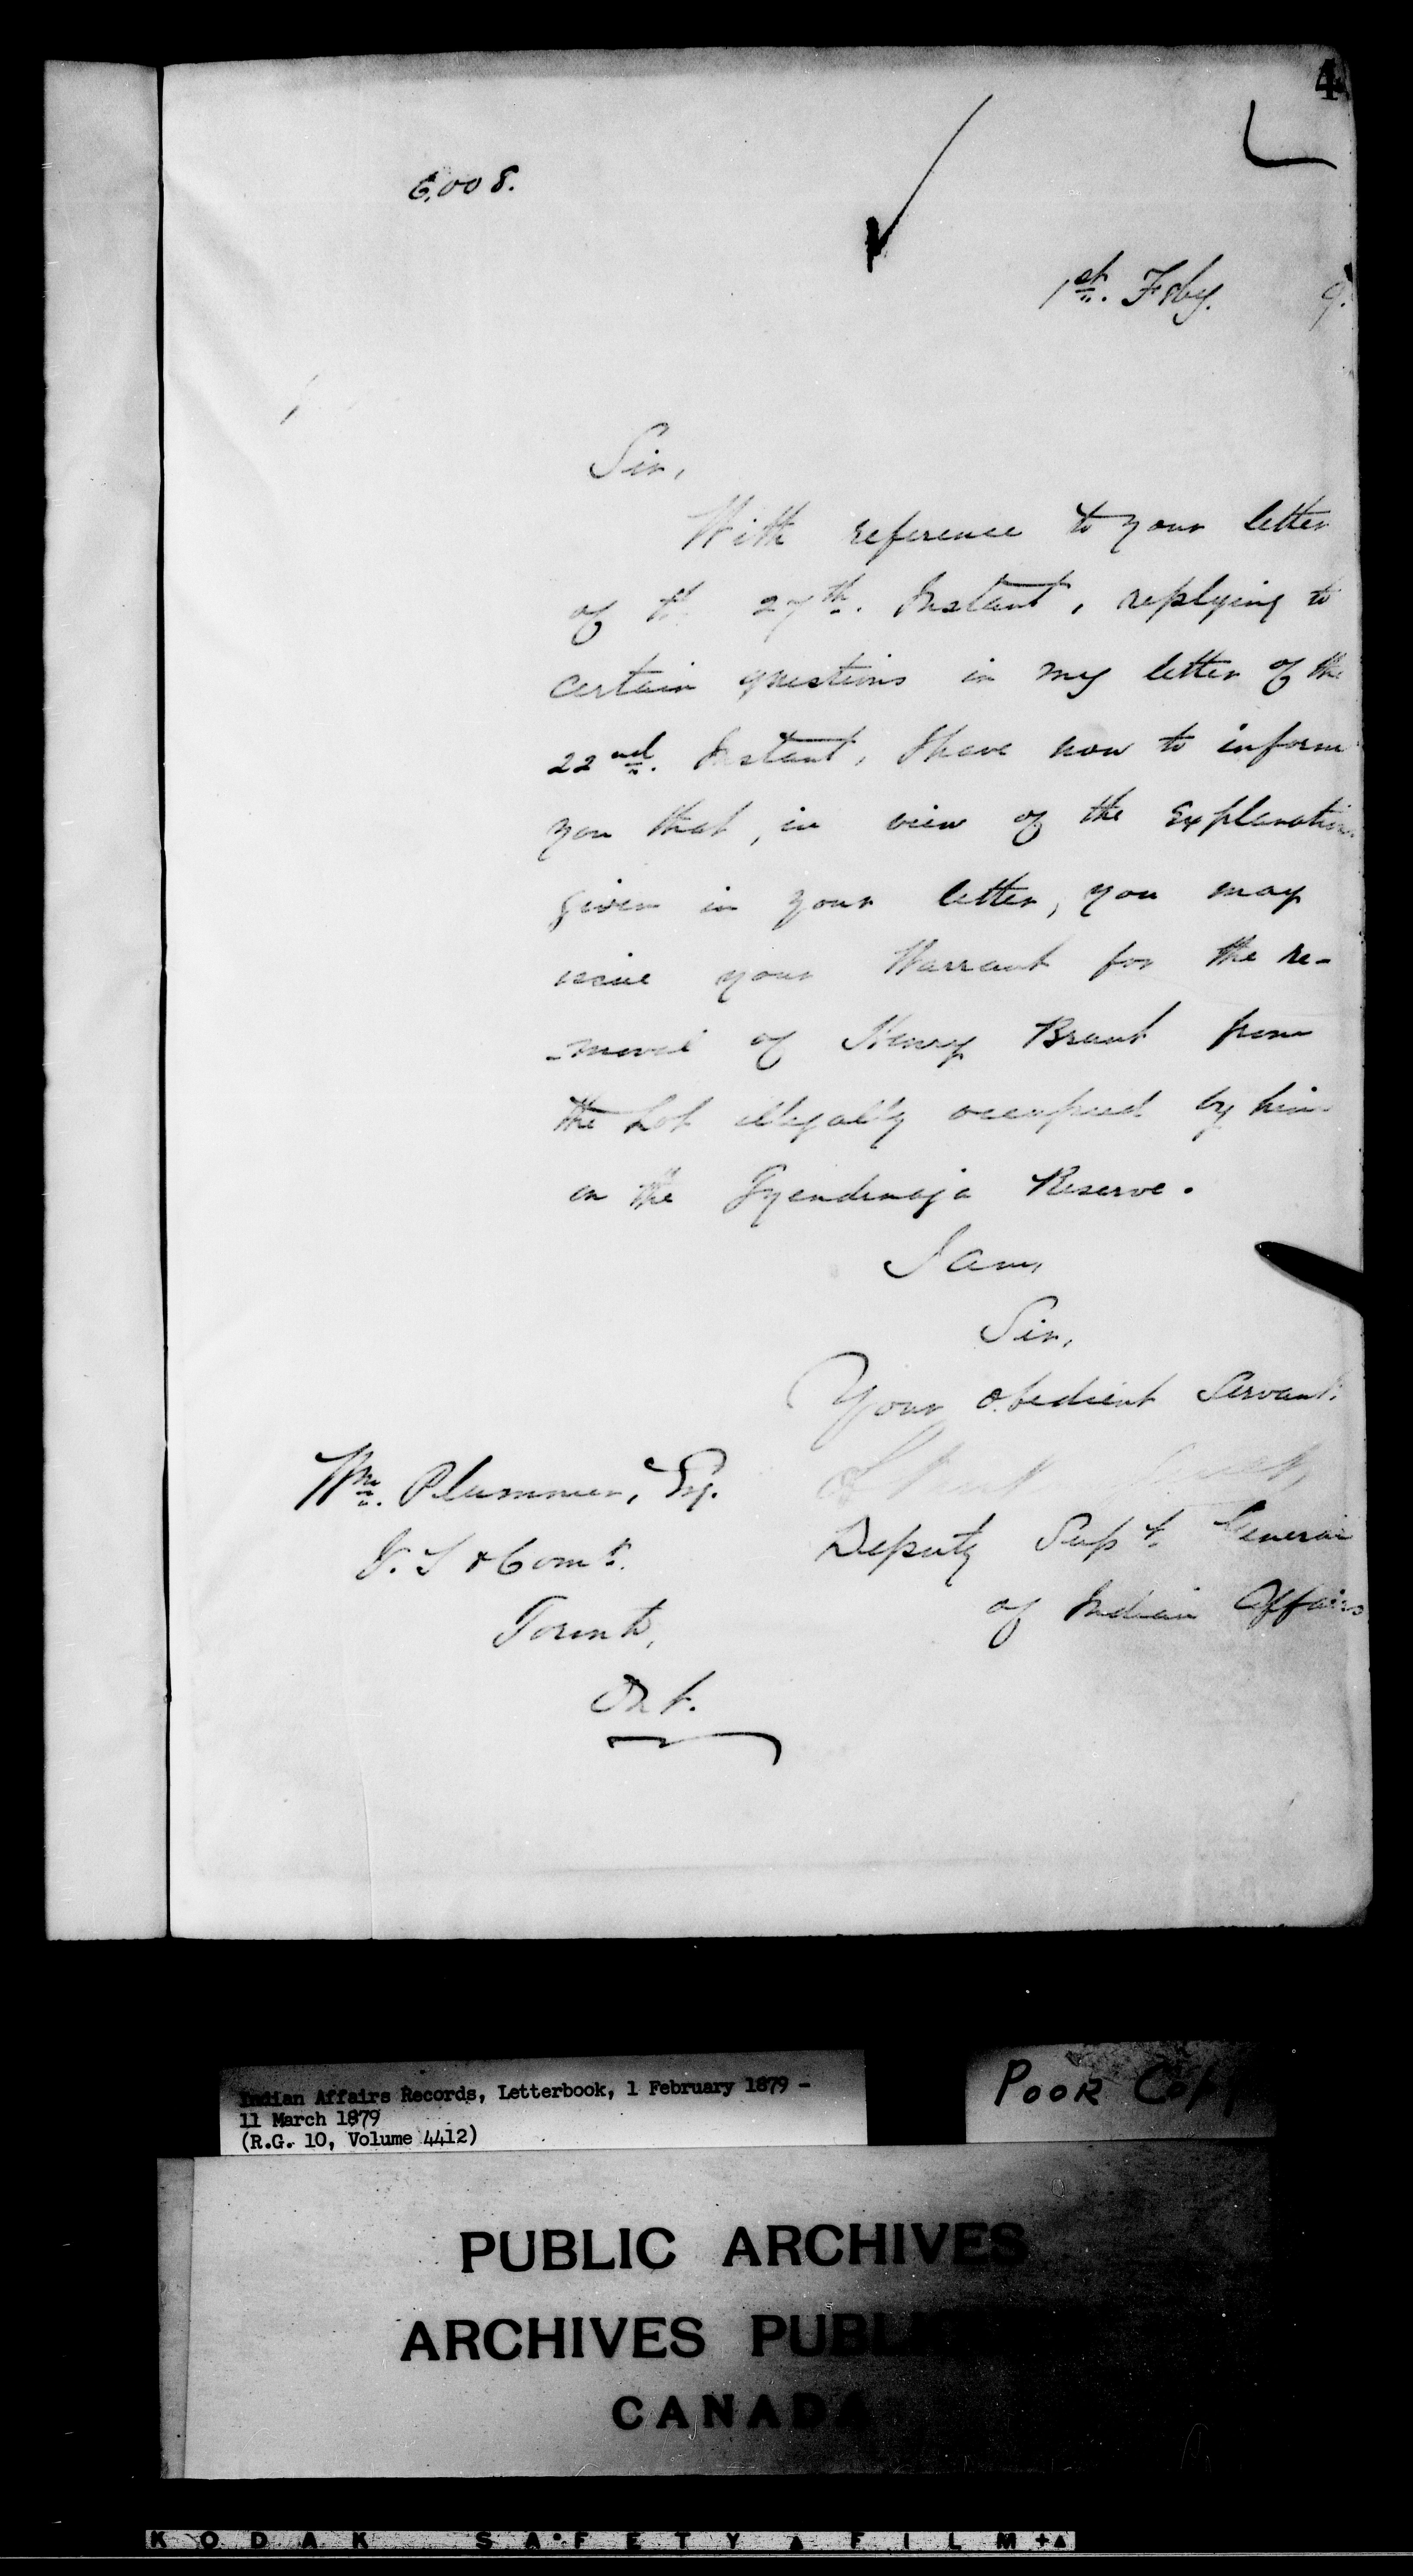 4
6,008.
1st. Feby. 9.
Sir,
With reference to your letter
of th 27th. Instant, replying to
certain questions in my letter of the
22nd. Instant, I have now to inform
you that, in view of the Explanation
given in your letter, you may
issue your Warrant for the re-
-moval of Henry Brant from
the Lot illegally occupied by him
on the Tyendinaga Reserve.
I am,
Sir,
Your obedient Servant.
Deputy Supt. General
of Indian Affairs
Wm. Plummer, Esq.
V. S & Comr.
Toronto,
Ont.
Indian Affairs Records, Letterbook, 1 February 1879 -
11 March 1879
(R.G. 10, Volume 4412)
POOR COPY
PUBLIC ARCHIVES
ARCHIVES PUBL
CANADA
KODAK SAFETY FILM